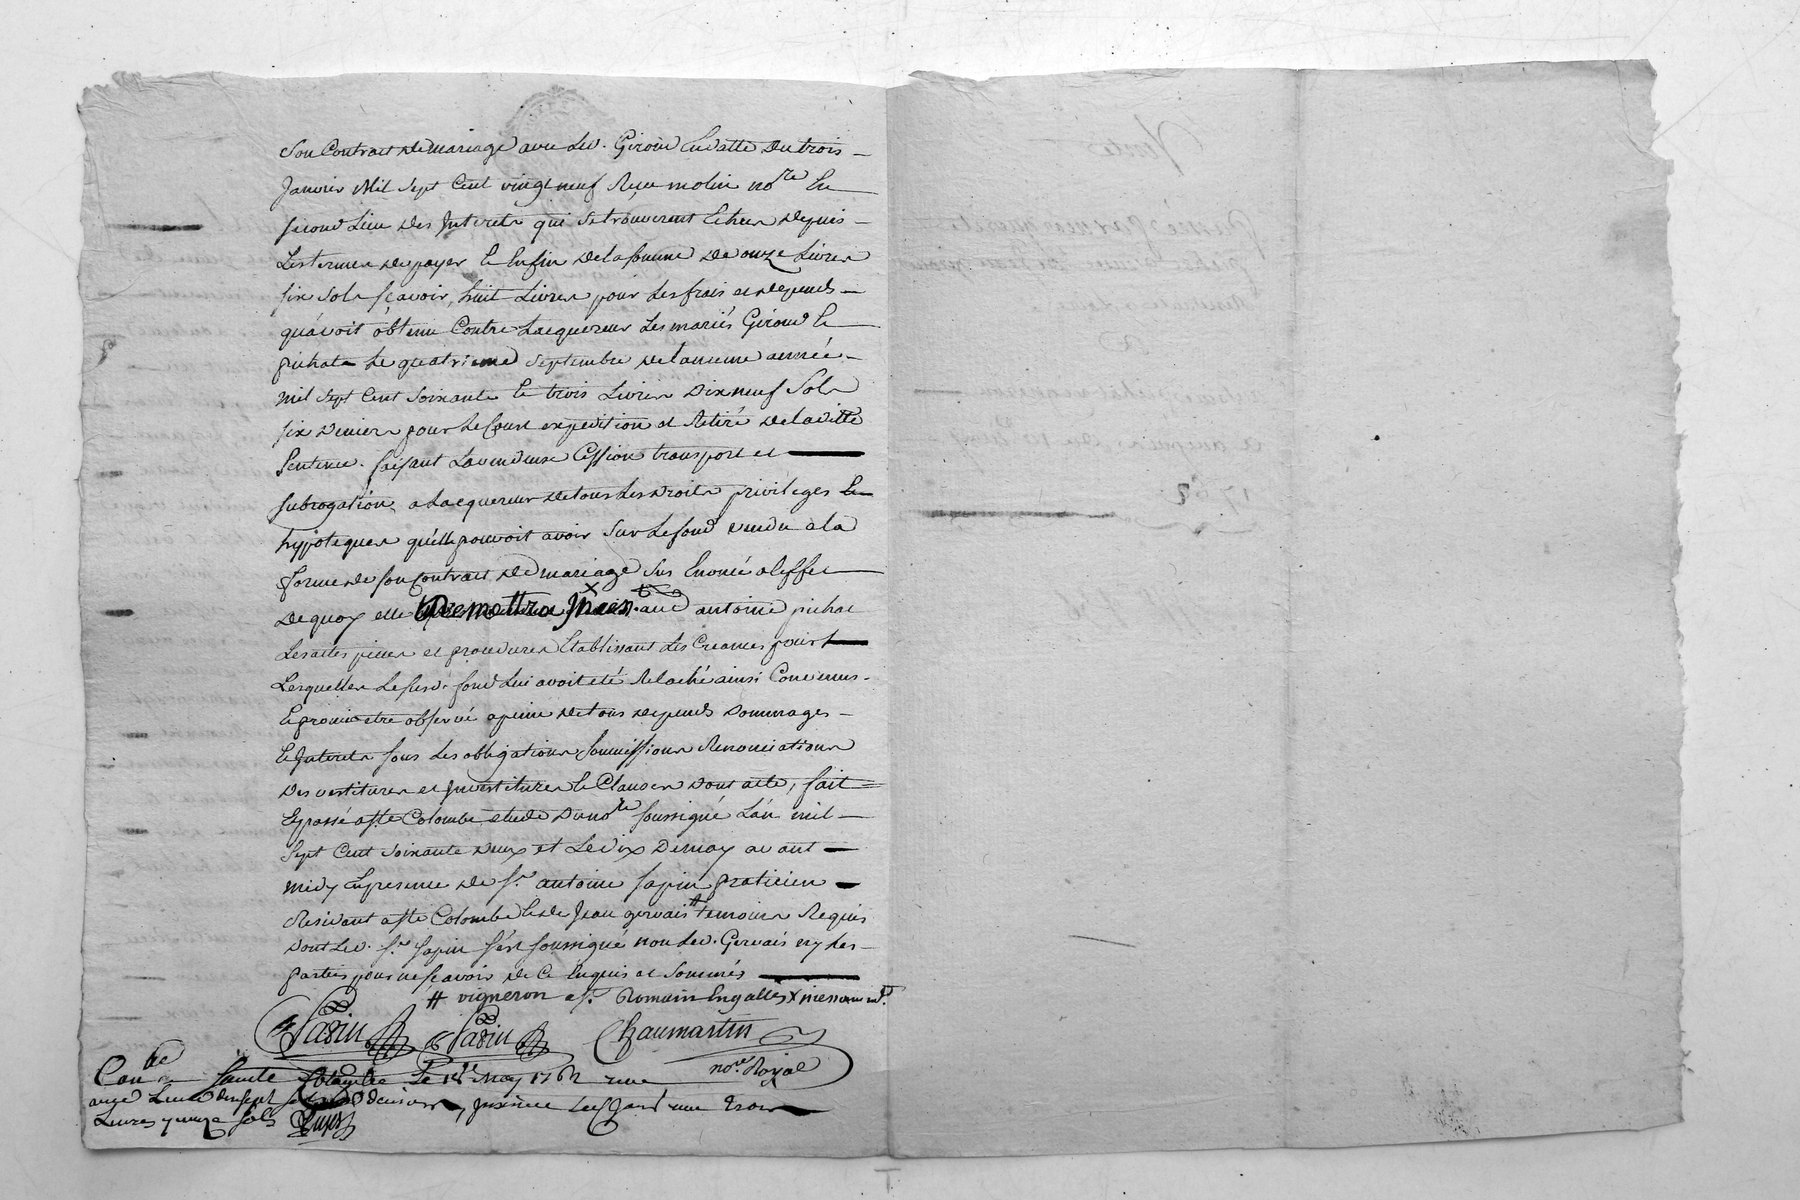 Son Contrait de mariage avec led. Giroud En datte du trois
Janvier Mil Sept Cent vingt neuf Reçu molin nore En
second Lieu des Interets qui se trouveront Echus depuis
Les termes de payer Et Enfin de la somme de onze Livres
six sols sçavoir, huit Livres pour Les frais et depends
qu'avoit óbtenu Contre Lacquereur Les mariés Giroud Et
pichat Le quatrieme septembre de lannée
mil sept Cent soixante Et trois Livres Dix neuf Sols
six deniers pour Le Cout expedition et Retiré de la ditte
Sentence. faisant La vendeuse Cession transport et
subrogation a Lacquereur de tous Les droits privileges Et
hypoteques qu'elle pouvoit avoir sur Le fond vendu a la
forme de son Contrait de mariage sus Enoncé a leffet
de quoy elle Remettra aud antoine pichat
Les actes pieces et procedures Etablissant Les Creances pour
Lesquelles Le susd. fond Lui avoit eté Relaché ainsi Convenus
Et promis etre observé a peine de tous depends dommages
Et Interets sous Les obligations soumissions Renonciations
des vestitures et Investitures Et Clauses dont acte, fait
Et passé a Ste Colombe etude du nore soussigné L'an mil
Sept Cent soixante deux et Le dix de may avant
midy En presence de Sr. antoine sapin praticien
Residant a Ste Colombe Et de Jean gervais # temoins Requis
dont Led. Sr. Sapin s'est soussigné non Led. Gervais ny Les
parties pour ne sçavoir de Ce Enquis et Sommés
# vigneron a St. Romain En galles x
Sapin Sapin Chaumartin
nore. Royal
Conlle a Sainte Colombe Le may 1762